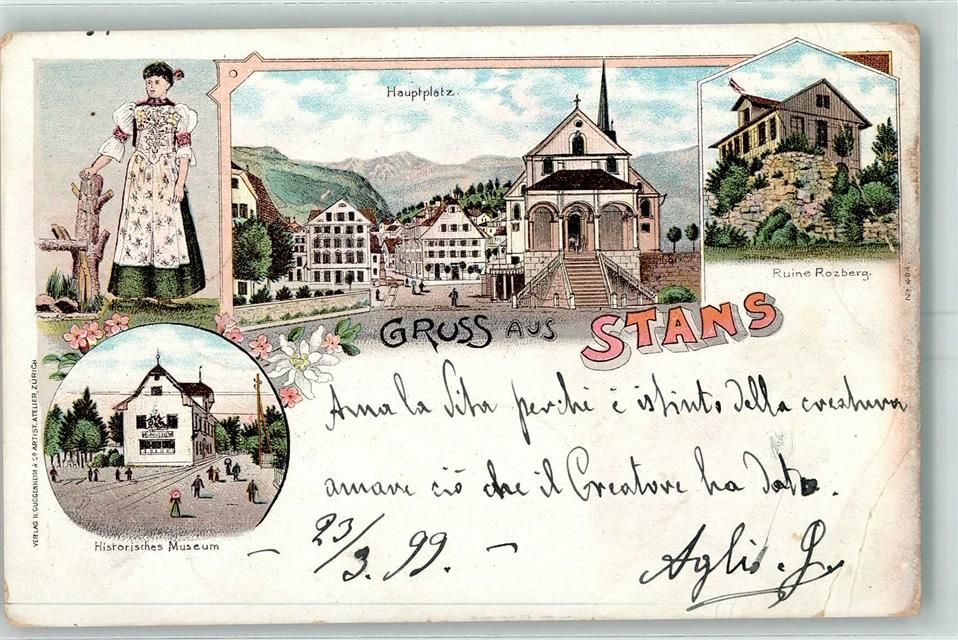 Hauptplatz.
Ruine Rozberg.
No. 404.
GRUSS AUS STANS
VERLAG H. GUGGENHEIM & Co ARTIST. ATELIER, ZÜRICH
Historisches Museum
Ama la Vita perchè è istinto della creatura
amare ciò che il Creatore ha dato.
23/3. 99.
Aglio. G.